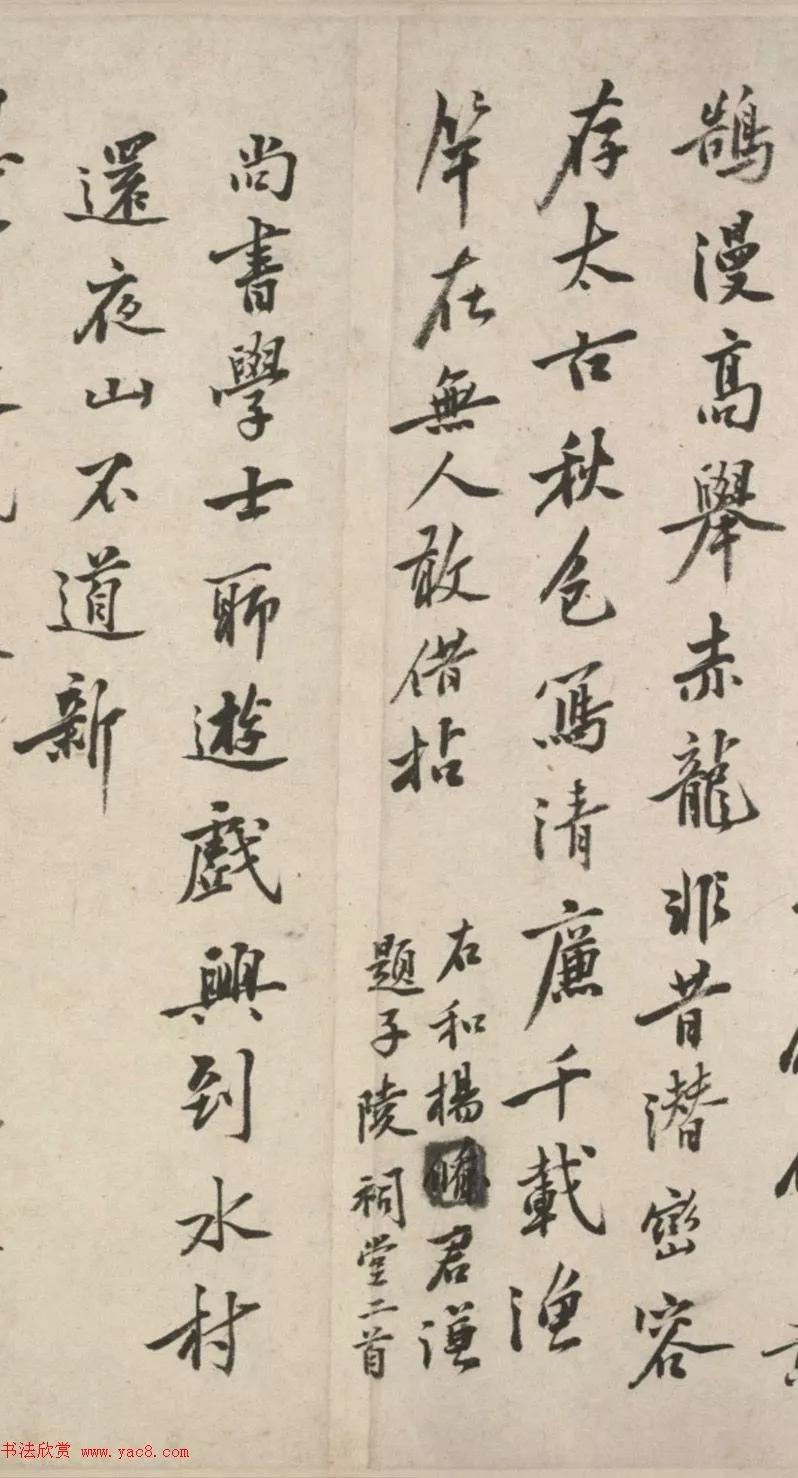 鵠漫高舉赤龍非昔潛巒容
存太古秋色寫清廉千載漁
竿在無人敢借拈
右和楊君謙
題子陵祠堂二首
尚書學士聊遊戲興到水村
還夜山不道新
书法欣赏 www.yac8.com